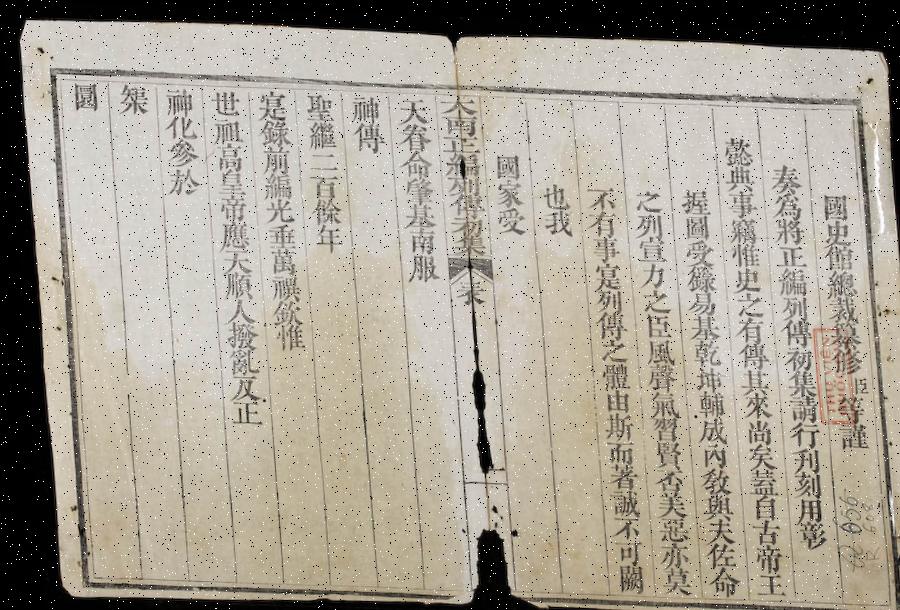 國史館總裁纂修臣等謹
奏為將正編列傳初集請行刊刻用彰
懿典事竊惟史之有傳其來尚矣蓋自古帝王
握圖受籙易基乾坤輔成內敎與夫佐命
之列宣力之臣風聲氣習賢否美惡亦莫
不有事寔列傳之體由斯而著誠不可闕
也我
國家受
大南正編列傳初集 表
天眷命肇基南服
神傳
聖繼二百餘年
寔錄前編光垂萬禩欽惟
世祖高皇帝應天順人撥亂反正
神化參於
榘
圓